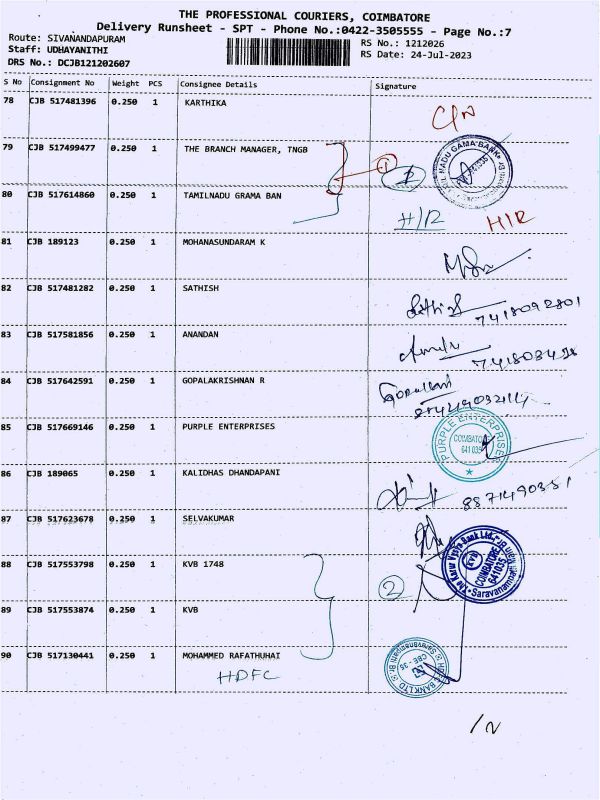 THE PROFESSIONAL COURIERS, COIMBATORE
Delivery Runsheet - SPT - Phone No.:0422-3505555 - Page No.:7
Route: SIVANANDAPURAM
Staff: UDHAYANITHI
DRS No.: DCJB121202607
RS No.: 1212026
RS Date: 24-Jul-2023
S No Consignment No Weight PCS Consignee Details Signature
78 CJB 517481396 0.250 1 KARTHIKA
79 CJB 517499477 0.250 1 THE BRANCH MANAGER, TNGB
80 CJB 517614860 0.250 1 TAMILNADU GRAMA BAN H/R H/R
81 CJB 189123 0.250 1 MOHANASUNDARAM K
82 CJB 517481282 0.250 1 SATHISH
7418092801
83 CJB 517581856 0.250 1 ANANDAN
84 CJB 517642591 0.250 1 GOPALAKRISHNAN R
85 CJB 517669146 0.250 1 PURPLE ENTERPRISES
PURPLE ENTERPRISES
COIMBATORE
641 035
86 CJB 189065 0.250 1 KALIDHAS DHANDAPANI
87 CJB 517623678 0.250 1 SELVAKUMAR
88 CJB 517553798 0.250 1 KVB 1748 2
The Karur Vysya Bank Ltd
KVB
COIMBATORE
641035
89 CJB 517553874 0.250 1 KVB
90 CJB 517130441 0.250 1 MOHAMMED RAFATHUHAI
HDFC
HDFC BANK LTD
CBE - 35